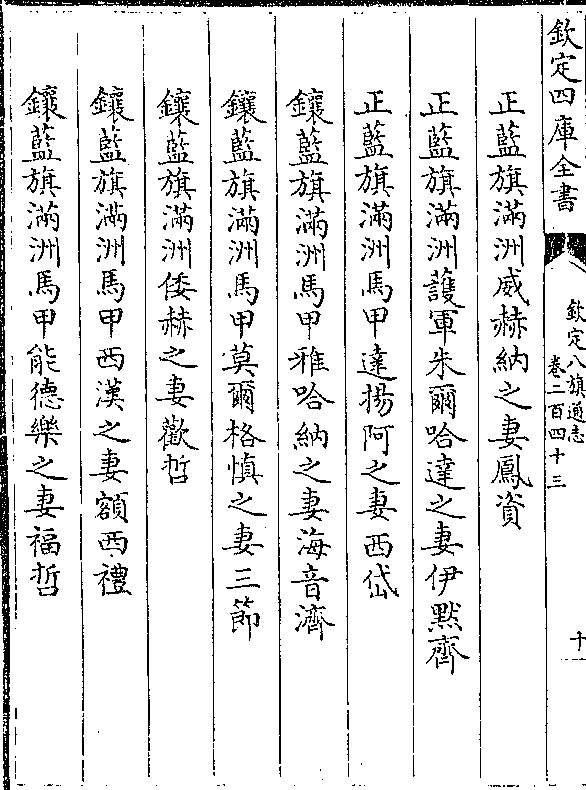 欽定四庫全書
欽定八旗通志
卷二百四十三
十
正藍旗滿洲威赫納之妻鳳資
正藍旗滿洲護軍朱爾哈達之妻伊黙齊
正藍旗滿洲馬甲達揚阿之妻西岱
鑲藍旗滿洲馬甲雅哈納之妻海音濟
鑲藍旗滿洲馬甲莫爾格慎之妻三節
鑲藍旗滿洲倭赫之妻歡哲
鑲藍旗滿洲馬甲西漢之妻額西禮
鑲藍旗滿洲馬甲能德樂之妻福哲